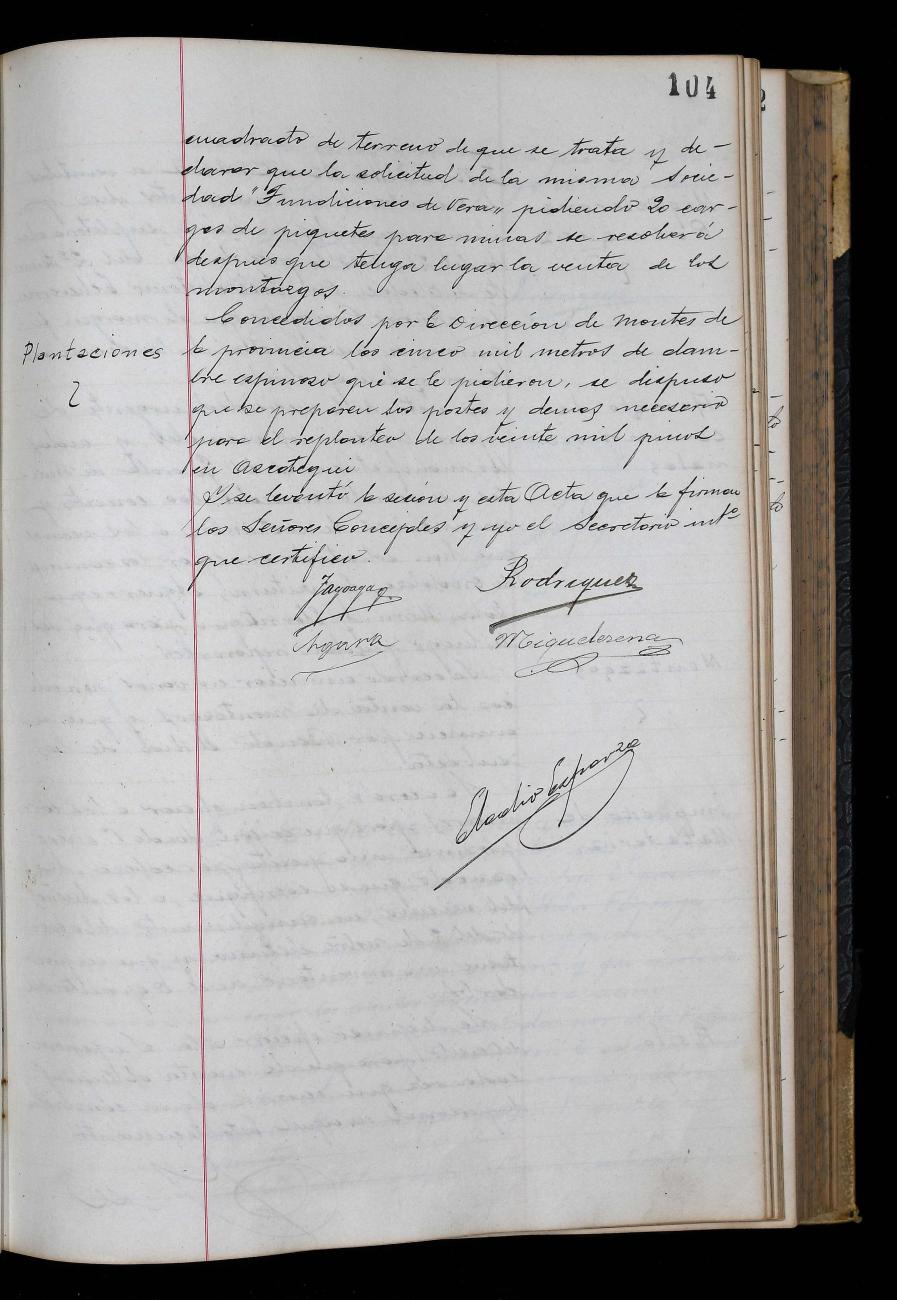 104
cuadrado de terreno de que se trata y de-
clarar que la solicitud de la misma Socie-
dad "Fundiciones de Vera" pidiendo 20 car-
gos de piquetes para minas se resolverá
después que tenga lugar la venta de los
montazgos.
Plantaciones
Concedidos por la Dirección de Montes de
la provincia los cinco mil metros de alam-
bre espinoso que se le pidieron, se dispuso
que se preparen los postes y demas necesario
para el replanteo de los veinte mil pinos
en
Y se levantó la sesión y esta Acta que la firman
los Señores Concejales y yo el Secretario intº
que certifico.
Rodriguez
Miguelerena
Eladio Esparza